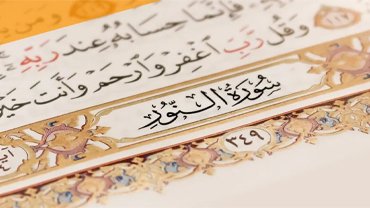 ومن
١١٧
فَإِنَّمَا حِسَابُهُ عِندَ رَبِّهِ
وَقُل رَّبِّ اغْفِرْ وَارْحَمْ وَأَنتَ خَيْرُ
سُورَةُ النُّورِ
٣٤٩